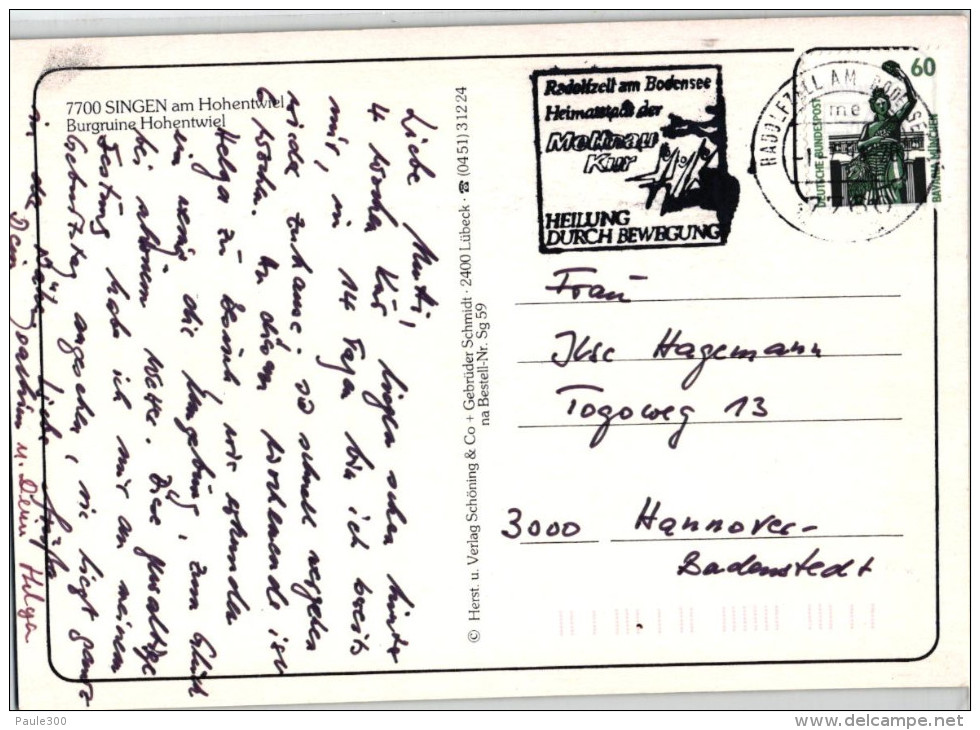 7700 SINGEN am Hohentwiel
Burgruine Hohentwiel
Liebe Mutti,
4 Wochen Kur liegen schon hinter
mir, in 14 Tagen bin ich bereits
wieder zuhause. So schnell vergehen
6 Wochen. An diesem Wochenende ist
Helga zu Besuch, wir erkunden
ein wenig die Umgebung, zum Glück
bei schönem Wetter. Diese gewaltige
Festung habe ich mir an meinem
Geburtstag angesehen, sie liegt ganz
in der Nähe. Liebe Grüße
Dein Joachim u. Deine Helga
© Herst. u. Verlag Schöning & Co + Gebrüder Schmidt · 2400 Lübeck · ☎ (0451) 31224
na Bestell-Nr. Sg 59
Radolfzell am Bodensee
Heimatstadt der
Mettnau
Kur
HEILUNG
DURCH BEWEGUNG
RADOLFZELL AM BODENSEE
me
60
DEUTSCHE BUNDESPOST
BAVARIA MÜNCHEN
Frau
Ilse Hagemann
Togoweg 13
3000 Hannover-
Badenstedt
Paule300
delcampe.net